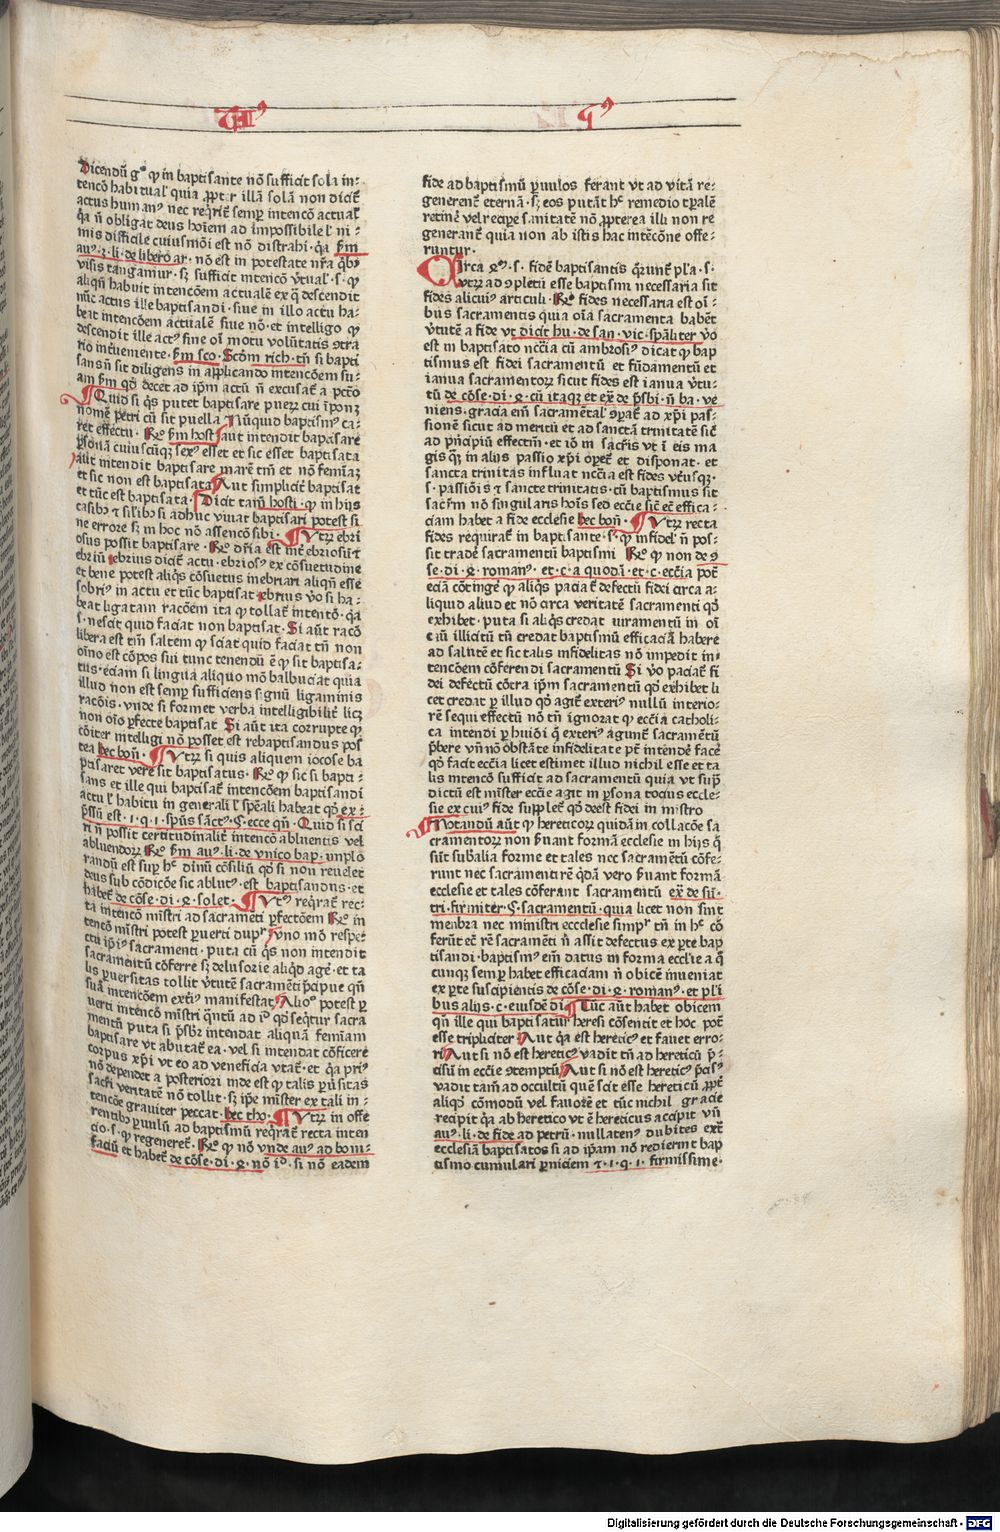 Dicendū gͦ ꝙ in baptisante nō sufficit sola in⸗
tencō habitual' quia ꝓpter illā solā non dicit᷑
actus humanꝰ nec reqrit᷑ semꝑ intencō actual'
q̄a n̄ obligat deus hoīem ad impossibile l' ni⸗
mis difficile cuiusmōi est nō distrahi · q̄a ẜm
auꝰ · 3 · li · de libero ar · nō est in potestate nr̄a qͥbꝰ
visis tangamur · sꝫ sufficit intencō v̓tual' · s · ꝙ
aliqn̄ habuit intencōem actualē ex q̄ descendit
nūc actus ille baptisandi · siue in illo actu ha⸗
beat intencōem actualē siue nō · et intelligo ꝙ
descendit ille actꝰ sine oī motu volūtatis ꝯtra
rio int̓ueniente · ẜm sco · Scōm rich · tn̄ si bapti
sansn̄ sit diligens in applicando intencōem su⸗
am ẜm qd̓ decet ad ip̄m actū n̄ excusat᷑ a pctō
Quid si qͥs putet baptisare pueꝝ cui īponꝫ
nomē petri cū sit puella Nūquid baptismꝰ ca⸗
ret effectu · Rͦ ẜm host aut intendit baptisare
ꝑsonā cuiuscūqꝫ sexꝰ esset et sic esset baptisata
aut intendit baptisare marē tm̄ et nō femīaꝫ
et sic non est baptisata Aut simplicit̓ baptisat
et tūc est baptisata · Dicit tam̄ hosti · ꝙ in hijs
casibꝰ ⁊ silibꝰ si adhuc viuat baptisari potest si
ne errore sꝫ in hoc nō assencō sibi · Vtꝝ ebri
osus possit baptisare · Rͦ dr̄ia est int̓ ebriosū ⁊
ebriū ebrius dicit᷑ actu · ebriosꝰ ex cōsuetudine
et bene potest aliqͥs cōsuetus inebriari aliqn̄ esse
sobriꝰ in actu et tūc baptisat · ebrius v̓o si ha⸗
beat ligatam racōem ita ꝙ tollat᷑ intentō · q̄a
s · nescit quid faciat non baptisat · Si aūt racō
libera est tm̄ saltem ꝙ sciat quid faciat tn̄ non
oīno est cōpos sui tunc tenendū ē ꝙ sit baptisa⸗
tus · eciam si lingua aliquo mō balbuciat quia
illud non est semꝑ sufficiens signū ligaminis
racōis · vnde si formet verba intelligibilit̓ licꝫ
non oīo ꝑfecte baptisat Si aūt ita corrupte ꝙ
cōiter intelligi nō posset est rebaptisandus pos
tea hec bon̄ · Vtꝝ si quis aliquem iocose ba
ptisaret vere sit baptisatus · Rͦ ꝙ sic si bapti⸗
sans et ille qui baptisat᷑ intencōem baptisandi
actu l' habitu in generali l' sp̄eali habeat qd̓ ex⸗
p̄ssū est · 1 · q · 1 · sp̄us sāctꝰ · ℭ · ecce qn̄ · Quid si sci
ri n̄ possit certitudinalit̓ intencō abluentis vel
abluendoꝝ Rͦ ẜm auꝰ · li · de vnico bap · implo
randū est suꝑ hͦ diuinū cōsiliū qd̓ si non reuelet
deus sub cōdicōe sic ablutꝰ · est baptisandus · et
habet᷑ de cōse · di · 4 · solet · Vtꝰ reqrat᷑ rec⸗
ta intencō mīstri ad sacramēti ꝑfectōem Rͦ in
tencō mīstri potest ꝑuerti dupl̓r vno mō respe⸗
ctu ip̄iꝰ sacramenti · puta cū qͥs non intendit
sacramentū cōferre sꝫ delusorie aliqd̓ age᷑ · et ta
lis ꝑuersitas tollit v̓tutē sacramēti p̄cipue qn̄
suā intencōem ext̓iꝰ manifestat Alioͦ potest ꝑ
uerti intencō mīstri q̄ntū ad id̓ qd̓ seqt̄ur sacra
mentū puta si p̄sbr̄ intendat aliquā femīam
baptisare vt abutat᷑ ea · vel si intendat cōficere
corpus xp̄i vt eo ad veneficia vtat᷑ · et q̄a priꝰ
nō dependet a posteriori inde est ꝙ talis ꝑūsitas
sacrī veritatē nō tollit · sꝫ ip̄e mīster ex tali in⸗
tencōe grauiter peccat · hec tho · Vtꝝ in offe
rentibꝰ ꝑuulū ad baptismū reqrat᷑ recta inten
cio · s · ꝙ regeneret᷑ · Rͦ ꝙ nō vnde auꝰ ad boni⸗
faciū et habet᷑ de cōse · di · 4 · nō id̓ · si nō eadem
fide ad baptismū ꝑuulos ferant vt ad vitā re⸗
generent᷑ eternā · sꝫ eos putāt hͦ remedio tꝑalē
retine᷑ vel recipe sanitatē nō ꝓpterea illi non re
generant᷑ quia non ab istis hac intēcōne offe⸗
runtur ·
Circa 4ͫ · s · fidē baptisantis q̄runt᷑ pl̓a · s ·
vtꝝ ad ꝯpletū esse baptismi necessaria sit
fides alicuiꝰ articuli · Rͦ fides necessaria est oī⸗
bus sacramentis quia oīa sacramenta habēt
v̓tutē a fide vt dicit hu · de san · vic · sp̄aliter v̓o
est in baptisato nccīa cū ambrosiꝰ dicat ꝙ bap
tismus est fidei sacramentū et fūdamentū et
ianua sacramentoꝝ sicut fides est ianua v̓tu⸗
tū de cōse · di · 4 · cū itaqꝫ et ex̄ de p̄sbi · n̄ ba · ve
niens · gracia em̄ sacramētal' oꝑat᷑ ad xp̄i pas⸗
sionē sicut ad meritū et ad sanctā trinitatē sic̄
ad p̄ncipiū effectm̄ · et iō in sacr̄is vt ī eis ma
gis qͣꝫ in alijs passio xp̄i oꝑet᷑ et disponat · et
sancta trinitas influat nccīa est fides vt̓usqꝫ ·
s · passiōis ⁊ sancte trinitatis · cū baptismus sit
sacr̄m nō singularis hoīs sed eccīe sic̄ et̄ effica⸗
ciam habet a fide ecclesie hec bon̄ · Vtꝝ recta
fides requirat᷑ in baptisante · s · ꝙ infidel' n̄ pos⸗
sit trade᷑ sacramentū baptismi Rͦ ꝙ non de ꝯ
se · di · 4 · romanꝰ · et · c · a quodā · et · c · eccīa pot̄
eciā cōtinge᷑ ꝙ aliqͥs paciat᷑ defectū fidei circa a⸗
liquid aliud et nō circa veritatē sacramenti qd̓
exhibet · puta si aliqͥs credat iuramentū in oī
c iū illicitū tn̄ credat baptismū efficaciā habere
ad salutē et sic talis infidelitas nō impedit in⸗
tencōem cōferendi sacramentū Si v̓o paciat᷑ fi
dei defectū cōtra ip̄m sacramentū qd̓ exhibet li
cet credat ꝑ illud qd̓ agit᷑ exteriꝰ nullū interio⸗
rē sequi effectū nō tn̄ ignorat ꝙ eccīa catholi⸗
ca intendi ꝑ huiōi q̄ exteriꝰ agunt᷑ sacramētū
p̄bere vn̄ nō obstāte infidelitate pt̄ intende᷑ face᷑
qd̓ facit eccīa licet estimet illud nichil esse et ta
lis intencō sufficit ad sacramentū quia vt supͣ
dictū est mīster eccīe agit in ꝑsona tocius eccle⸗
sie ex cuiꝰ fide supplet᷑ qd̓ deest fidei in mīstro
Notandū aūt ꝙ hereticoꝝ quidā in collacōe sa
cramentoꝝ non ẜuant formā ecclesie in hijs q̄
sūt sub̄alia forme et tales nec sacramētū cōfe⸗
runt nec sacramenti rē qͥdā vero ẜuant formā
ecclesie et tales cōferant sacramentū ex̄ de sū⸗
tri · firmiter · ℭ · sacramentū · quia licet non sint
menbra nec ministri ecclesie simpl̓r tn̄ in hͦ cō
ferūt et̄ rē sacramēti n̄ assit defectus ex ꝑte bap
tisandi · baptismꝰ em̄ datus in forma eccl̓ie a q̄
cunqꝫ semꝑ habet efficaciam n̄ obicē inueniat
ex ꝑte suscipientis de cōse · di · 4 · romanꝰ · et pl̓i
bus alijs · c · eiusdē di Tūc aūt habet obicem
qn̄ ille qui baptisatur heresi cōsentit et hoc pot̄
esse tripliciter Aut q̄a est hereticꝰ et fauet erro⸗
ri Aut si nō est hereticꝰ vadit tn̄ ad hereticū p̄⸗
cisū in eccīe ꝯtemptū Aut si nō est hereticꝰ p̄cisꝰ
vadit tam̄ ad occultū quē scit esse hereticū ꝓpt̓
aliqd̓ cōmodū vel fauorē et tūc nichil gracie
recipit q̄a ab heretico vt ē hereticus accipit vn̄
auꝰ · li · de fide ad petrū · nullatenꝰ dubites extͣ
ecclesiā baptisatos si ad ip̄am nō redierint bap
tismo cumulari ꝑniciem ⁊ · 1 · q · 1 · firmissime ·
Digitalisierung gefördert durch die Deutsche Forschungsgemeinschaft - DFG